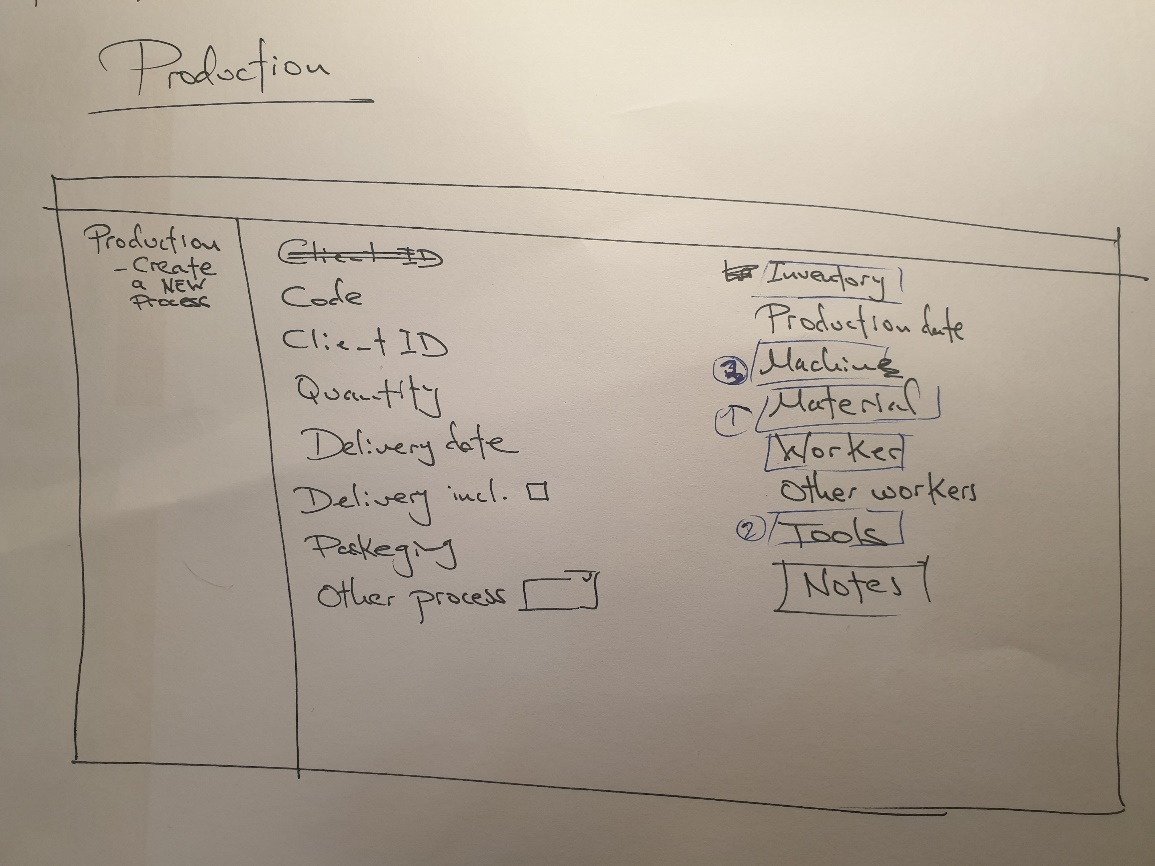 Production
Production
- Create
a NEW
Process
Client ID
Code
Client ID
Quantity
Delivery date
Delivery incl.
Packeging
Other process
Inventory
Production date
3 Machine
1 Material
Worker
Other workers
2 Tools
Notes